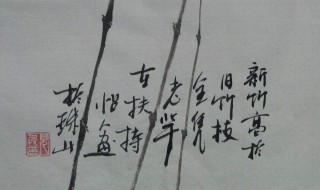 新竹高於
旧竹枝
全凭
老竿
在扶持
画
於珠山